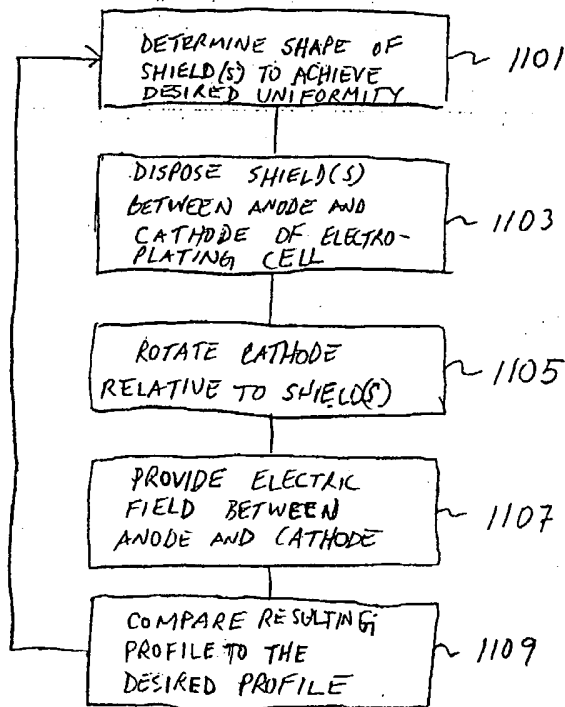 DETERMINE SHAPE OF
SHIELD(S) TO ACHIEVE
DESIRED UNIFORMITY
1101
DISPOSE SHIELD(S)
BETWEEN ANODE AND
CATHODE OF ELECTRO-
PLATING CELL
1103
ROTATE CATHODE
RELATIVE TO SHIELD(S)
1105
PROVIDE ELECTRIC
FIELD BETWEEN
ANODE AND CATHODE
1107
COMPARE RESULTING
PROFILE TO THE
DESIRED PROFILE
1109